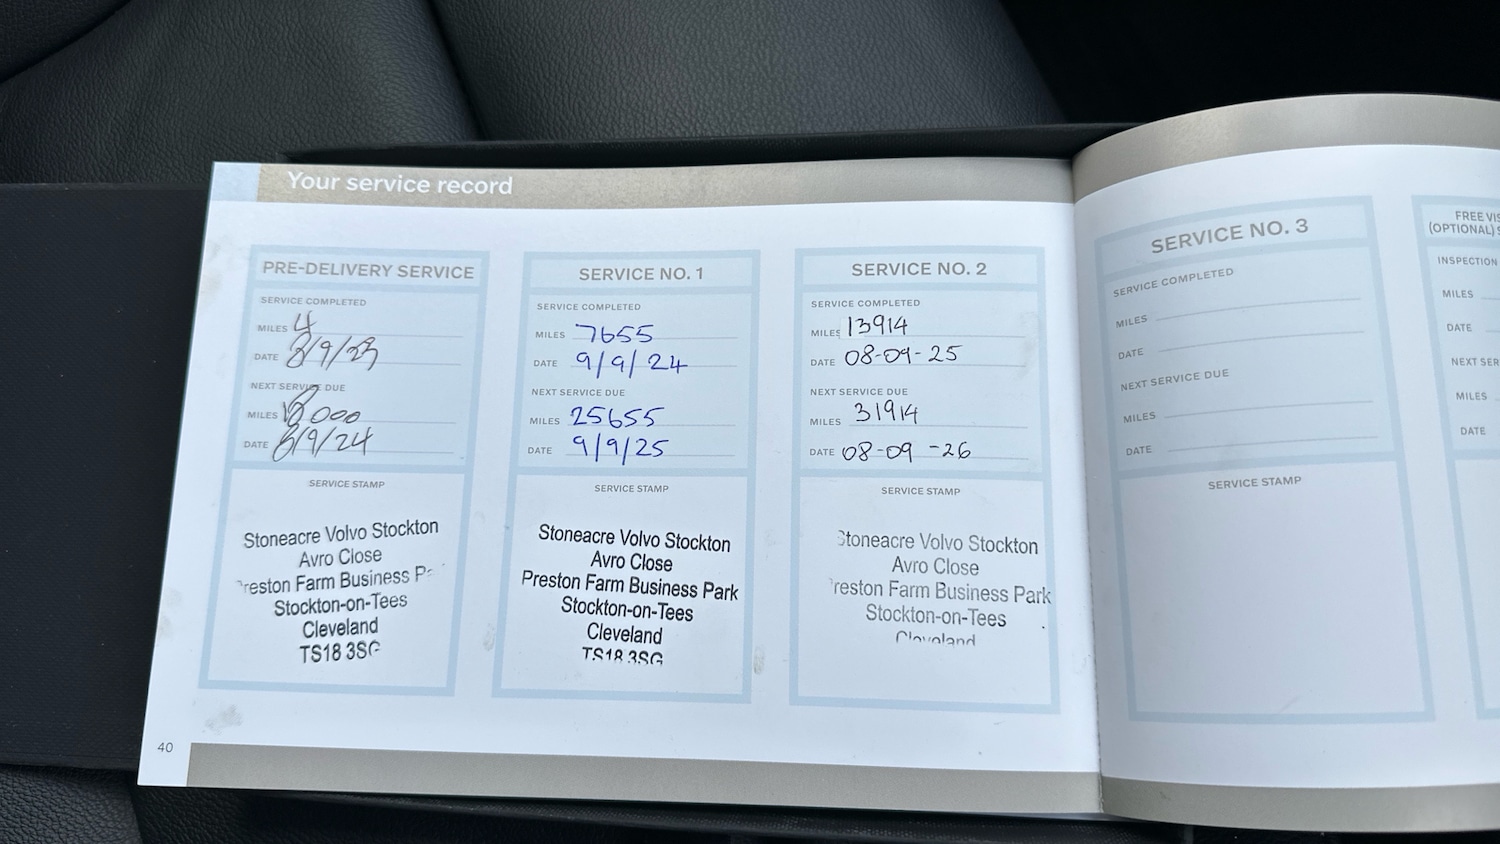 Your service record
PRE-DELIVERY SERVICE
SERVICE COMPLETED
MILES 4
DATE 8/9/23
NEXT SERVICE DUE
MILES 18000
DATE 8/9/24
SERVICE STAMP
Stoneacre Volvo Stockton
Avro Close
Preston Farm Business
Stockton-on-Tees
Cleveland
TS18 3SG
SERVICE NO. 1
SERVICE COMPLETED
MILES 7655
DATE 9/9/24
NEXT SERVICE DUE
MILES 25655
DATE 9/9/25
SERVICE STAMP
Stoneacre Volvo Stockton
Avro Close
Preston Farm Business Park
Stockton-on-Tees
Cleveland
TS18 3SG
SERVICE NO. 2
SERVICE COMPLETED
MILES 13914
DATE 08-09-25
NEXT SERVICE DUE
MILES 31914
DATE 08-09-26
SERVICE STAMP
Stoneacre Volvo Stockton
Avro Close
Preston Farm Business Park
Stockton-on-Tees
Cleveland
40
SERVICE NO. 3
SERVICE COMPLETED
MILES
DATE
NEXT SERVICE DUE
MILES
DATE
SERVICE STAMP
FREE
(OPTIONAL)
INSPECTION
MILES
DATE
NEXT
MILES
DATE